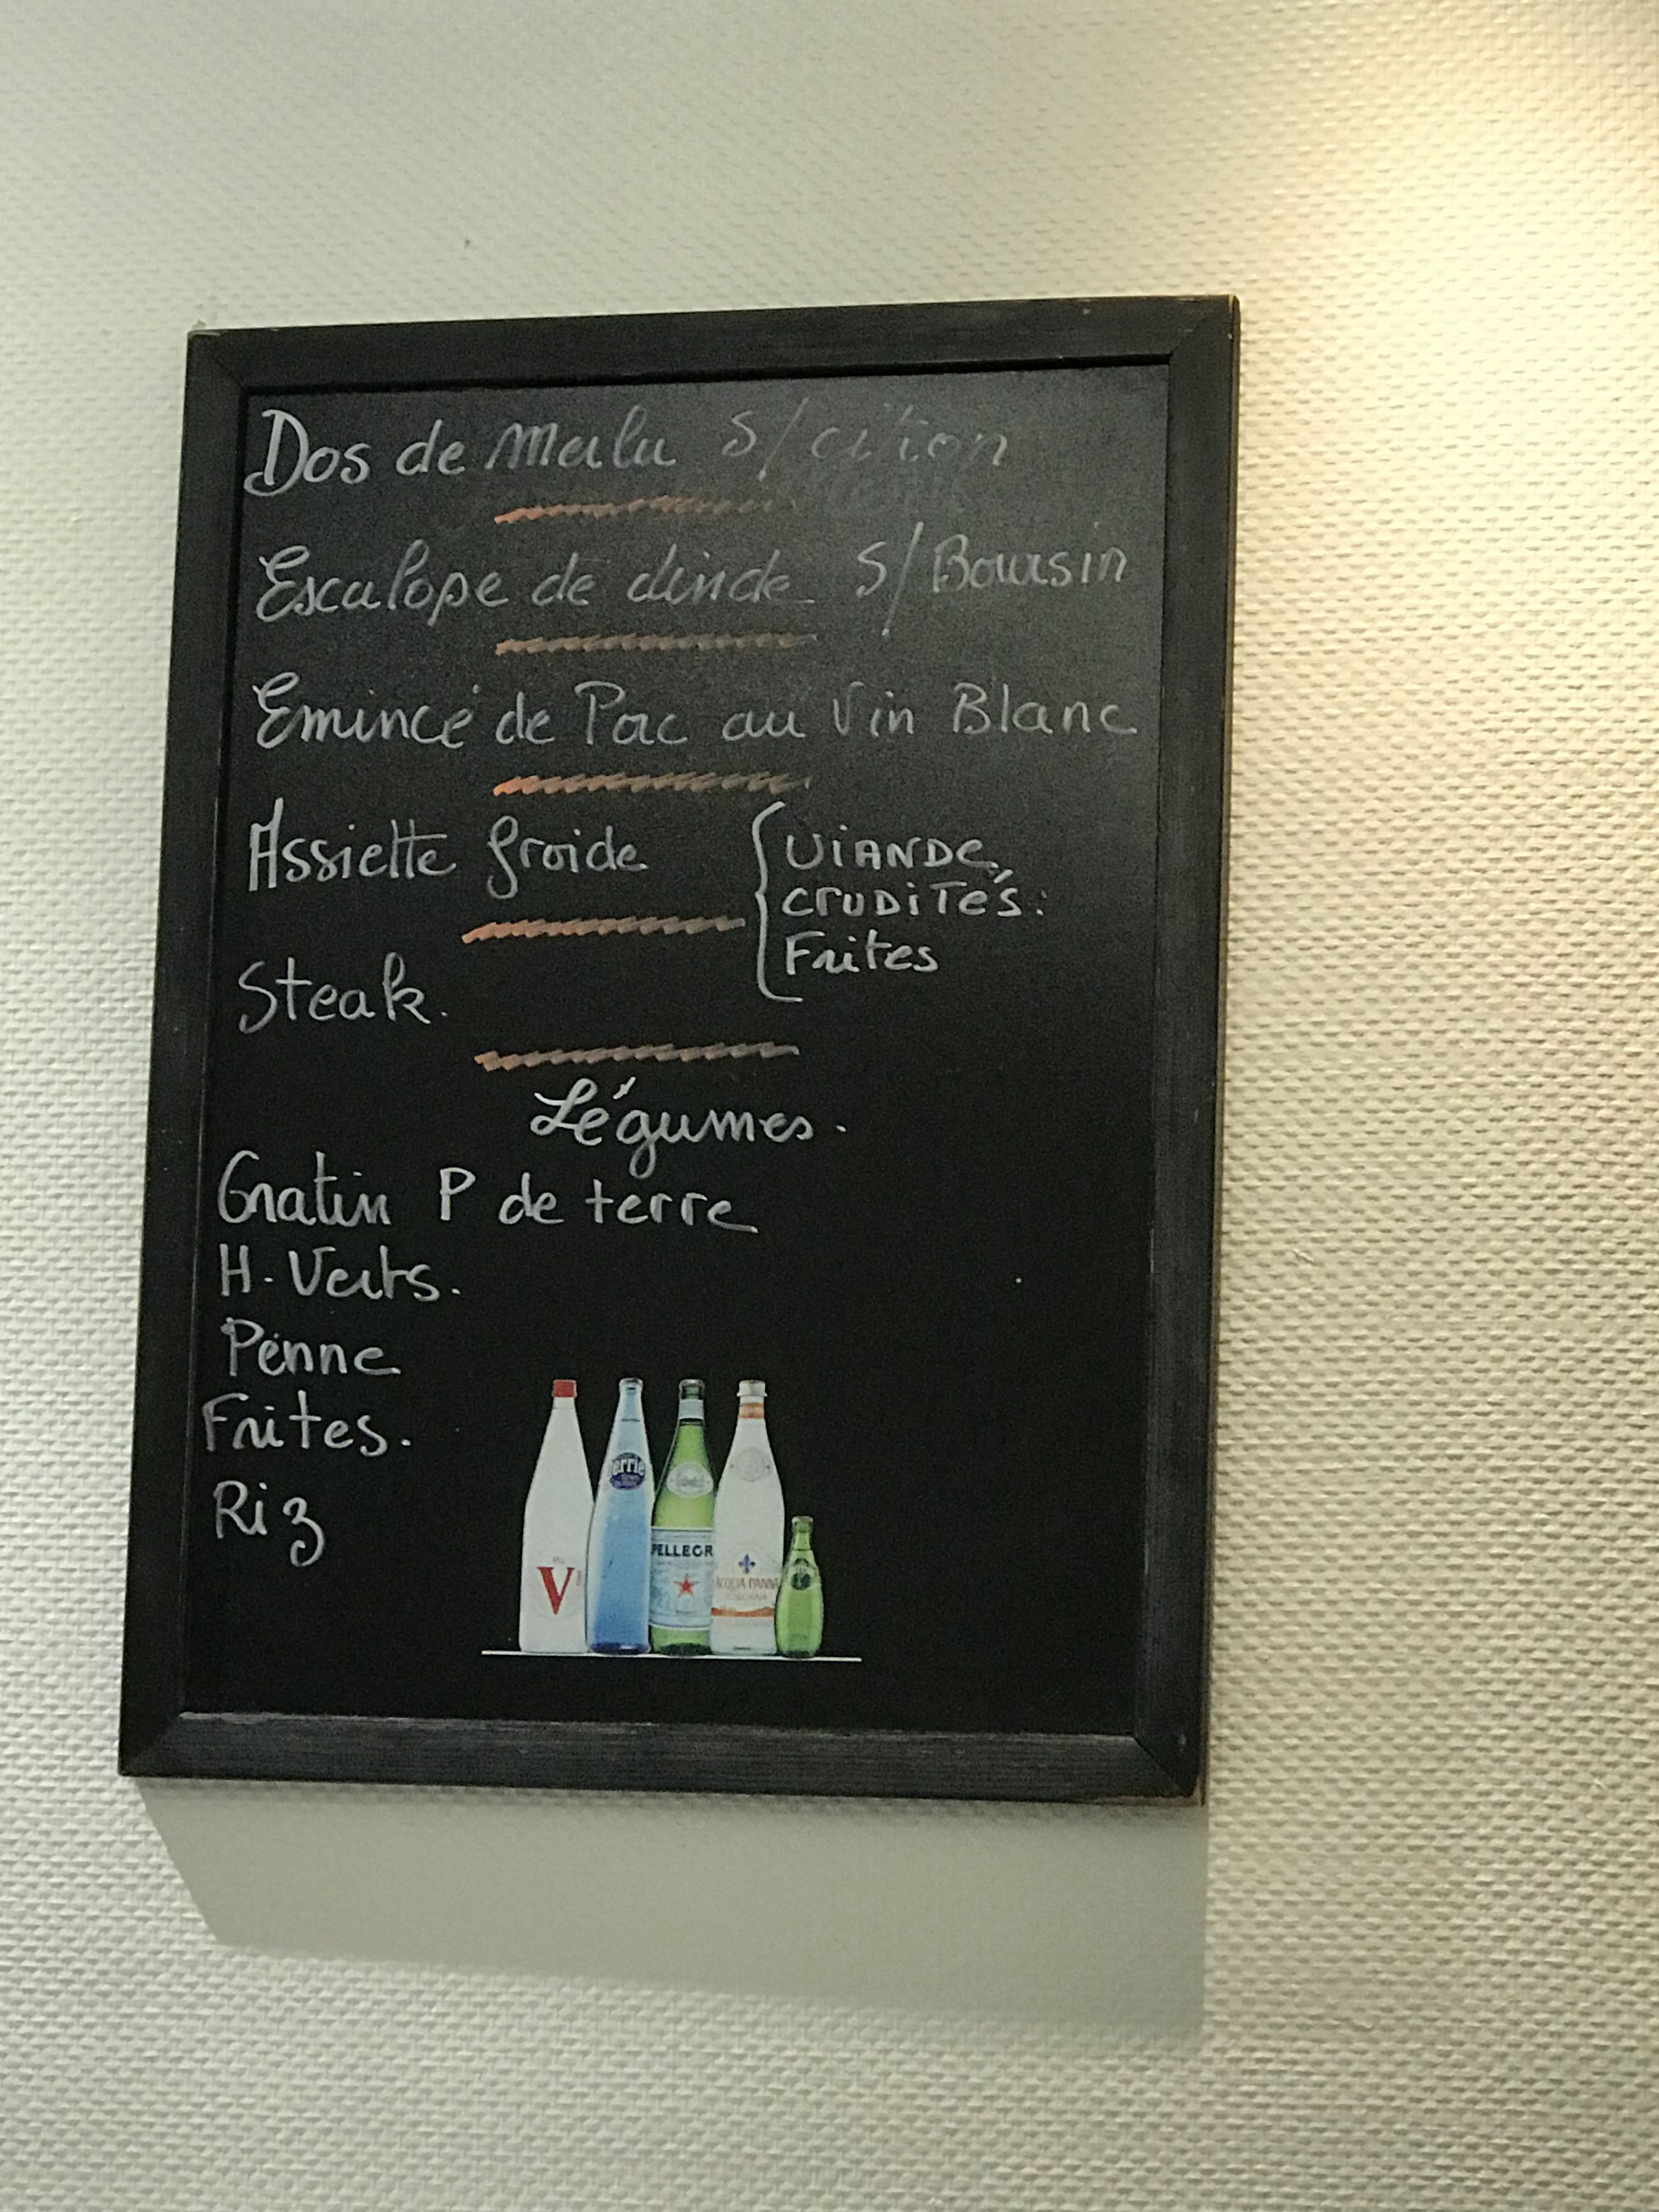 Dos de Merlu S/citron
Escalope de dinde S/Boursin
Emincé de Porc au Vin Blanc
Assiette froide
VIANDE,
CRUDITÉS.
Frites
Steak.
Légumes.
Gratin P de terre
H. Verts.
Penne
Frites.
Riz
V
PELLEGR
ACQUA PANNA
TOSCANA